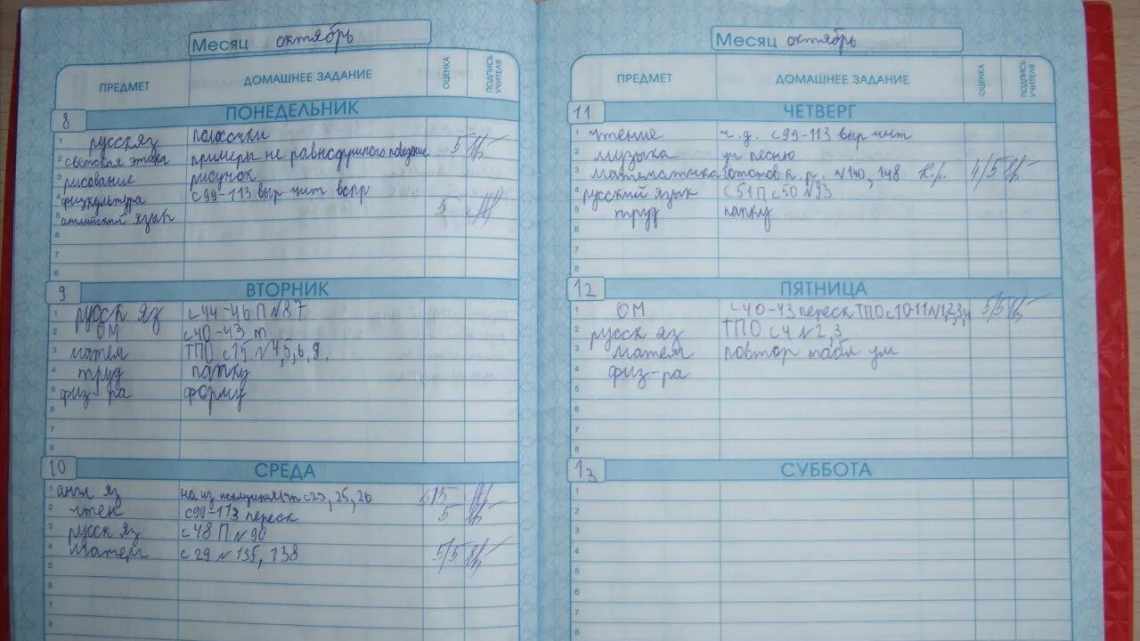 Месяц октябрь
ПРЕДМЕТ ДОМАШНЕЕ ЗАДАНИЕ ОЦЕНКА ПОДПИСЬ УЧИТЕЛЯ
8 ПОНЕДЕЛЬНИК
1 русск яз палочки
2 световая этика примеры не равнодушного 5
3 рисование рисунок
4 физкультура с 99-113 выр чит 5
5 английский язык
6
7
8
9 ВТОРНИК
1 русск яз с 44-46 П №87
2 ОМ с40-43 т
3 матем ТПО с 15 № 4,5,6,8,
4 труд папку
5 физ-ра форму
6
7
8
10 СРЕДА
1 англ яз на из с 23, 25, 26
2 чтен с99-113 переск 5
3 русск яз с 48 П №90
4 матем с 29 № 135, 138 5/5
5
6
7
8
Месяц октябрь
ПРЕДМЕТ ДОМАШНЕЕ ЗАДАНИЕ ОЦЕНКА ПОДПИСЬ УЧИТЕЛЯ
11 ЧЕТВЕРГ
1 чтение ч.д. с 99-113 выр чит
2 музыка уч песню
3 математика готов к к.р. №140, 148 к.р. 4/5
4 русский язык с 51 П с50 №93
5 труд папку
6
7
8
12 ПЯТНИЦА
1 ОМ с 40-43 переск ТПО с10-11 №1,2,3,4 5/5
2 русск яз ТПО с 4 №2,3
3 матем повтор табл ум
4 физ-ра
5
6
7
8
13 СУББОТА
1
2
3
4
5
6
7
8